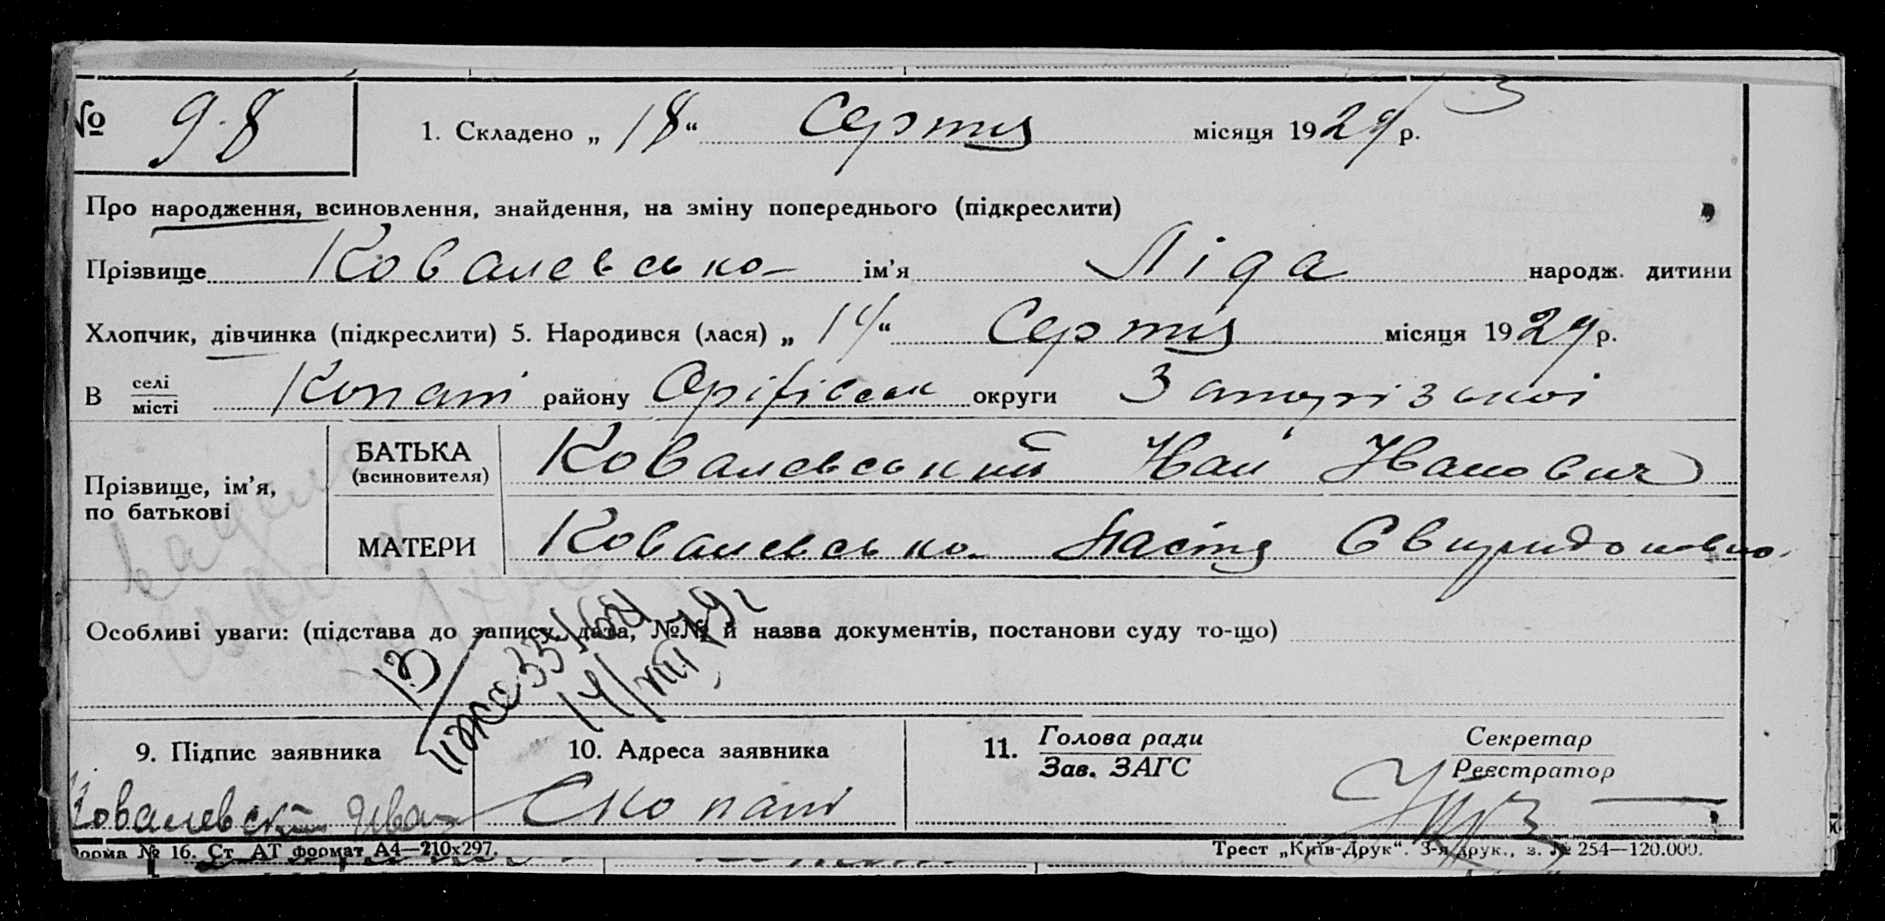 № 98 1. Складено „18“ Серпня місяця 1929 р.
Про народження, всиновлення, знайдення, на зміну попереднього (підкреслити)
Прізвище Ковалевська ім'я Ліда народж. дитини
Хлопчик, дівчинка (підкреслити) 5. Народився (лася) „14“ Серпня місяця 1929 р.
В селі місті Копані району Оріхівськ округи Запорізької
Прізвище, ім'я, по батькові
БАТЬКА (всиновителя) Ковалевський Іван Іванович
МАТЕРИ Ковалевська Настя Свиридоновна
Особливі уваги: (підстава до запису, дата, №№ й назва документів, постанови суду то-що)
9. Підпис заявника 10. Адреса заявника 11. Голова ради Зав. ЗАГС Секретар Реєстратор
Ковалевский Иван С Копані
Форма № 16. Ст. АТ формат А4—210х297. Трест „Київ-Друк“. 3-я друк., з. № 254—120.000.